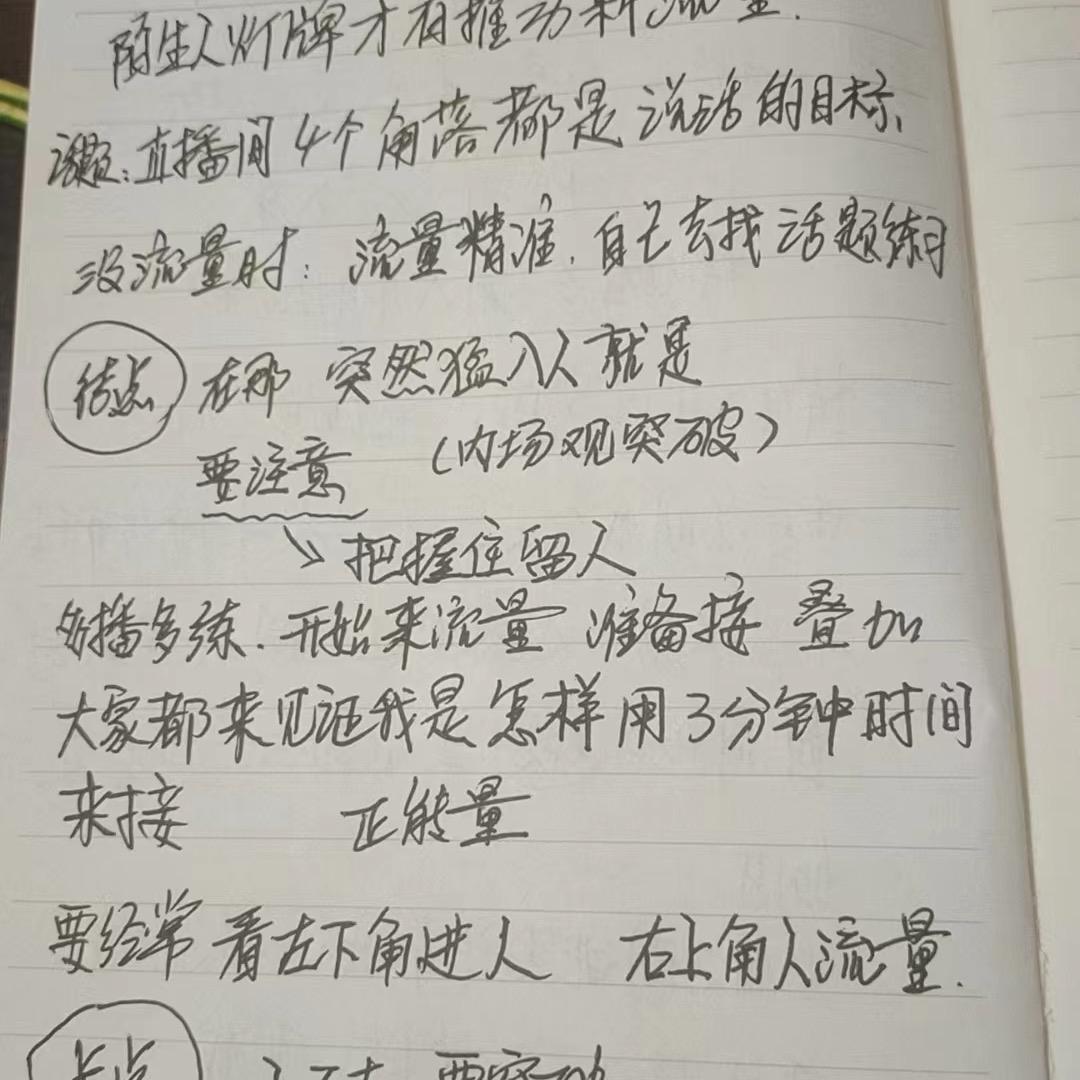 陌生人灯牌才有推动新流量.
话题:直播间4个角落都是说话的目标、
没流量时:流量精准.自己去找话题练习
结点 在哪 突然猛人就是
要注意 (内场观突破)
↘把握住留人
多播多练.开始来流量 准备接 叠加
大家都来见证我是怎样用3分钟时间
来接 正能量
要经常看左下角进人 右上角人流量.
要突破